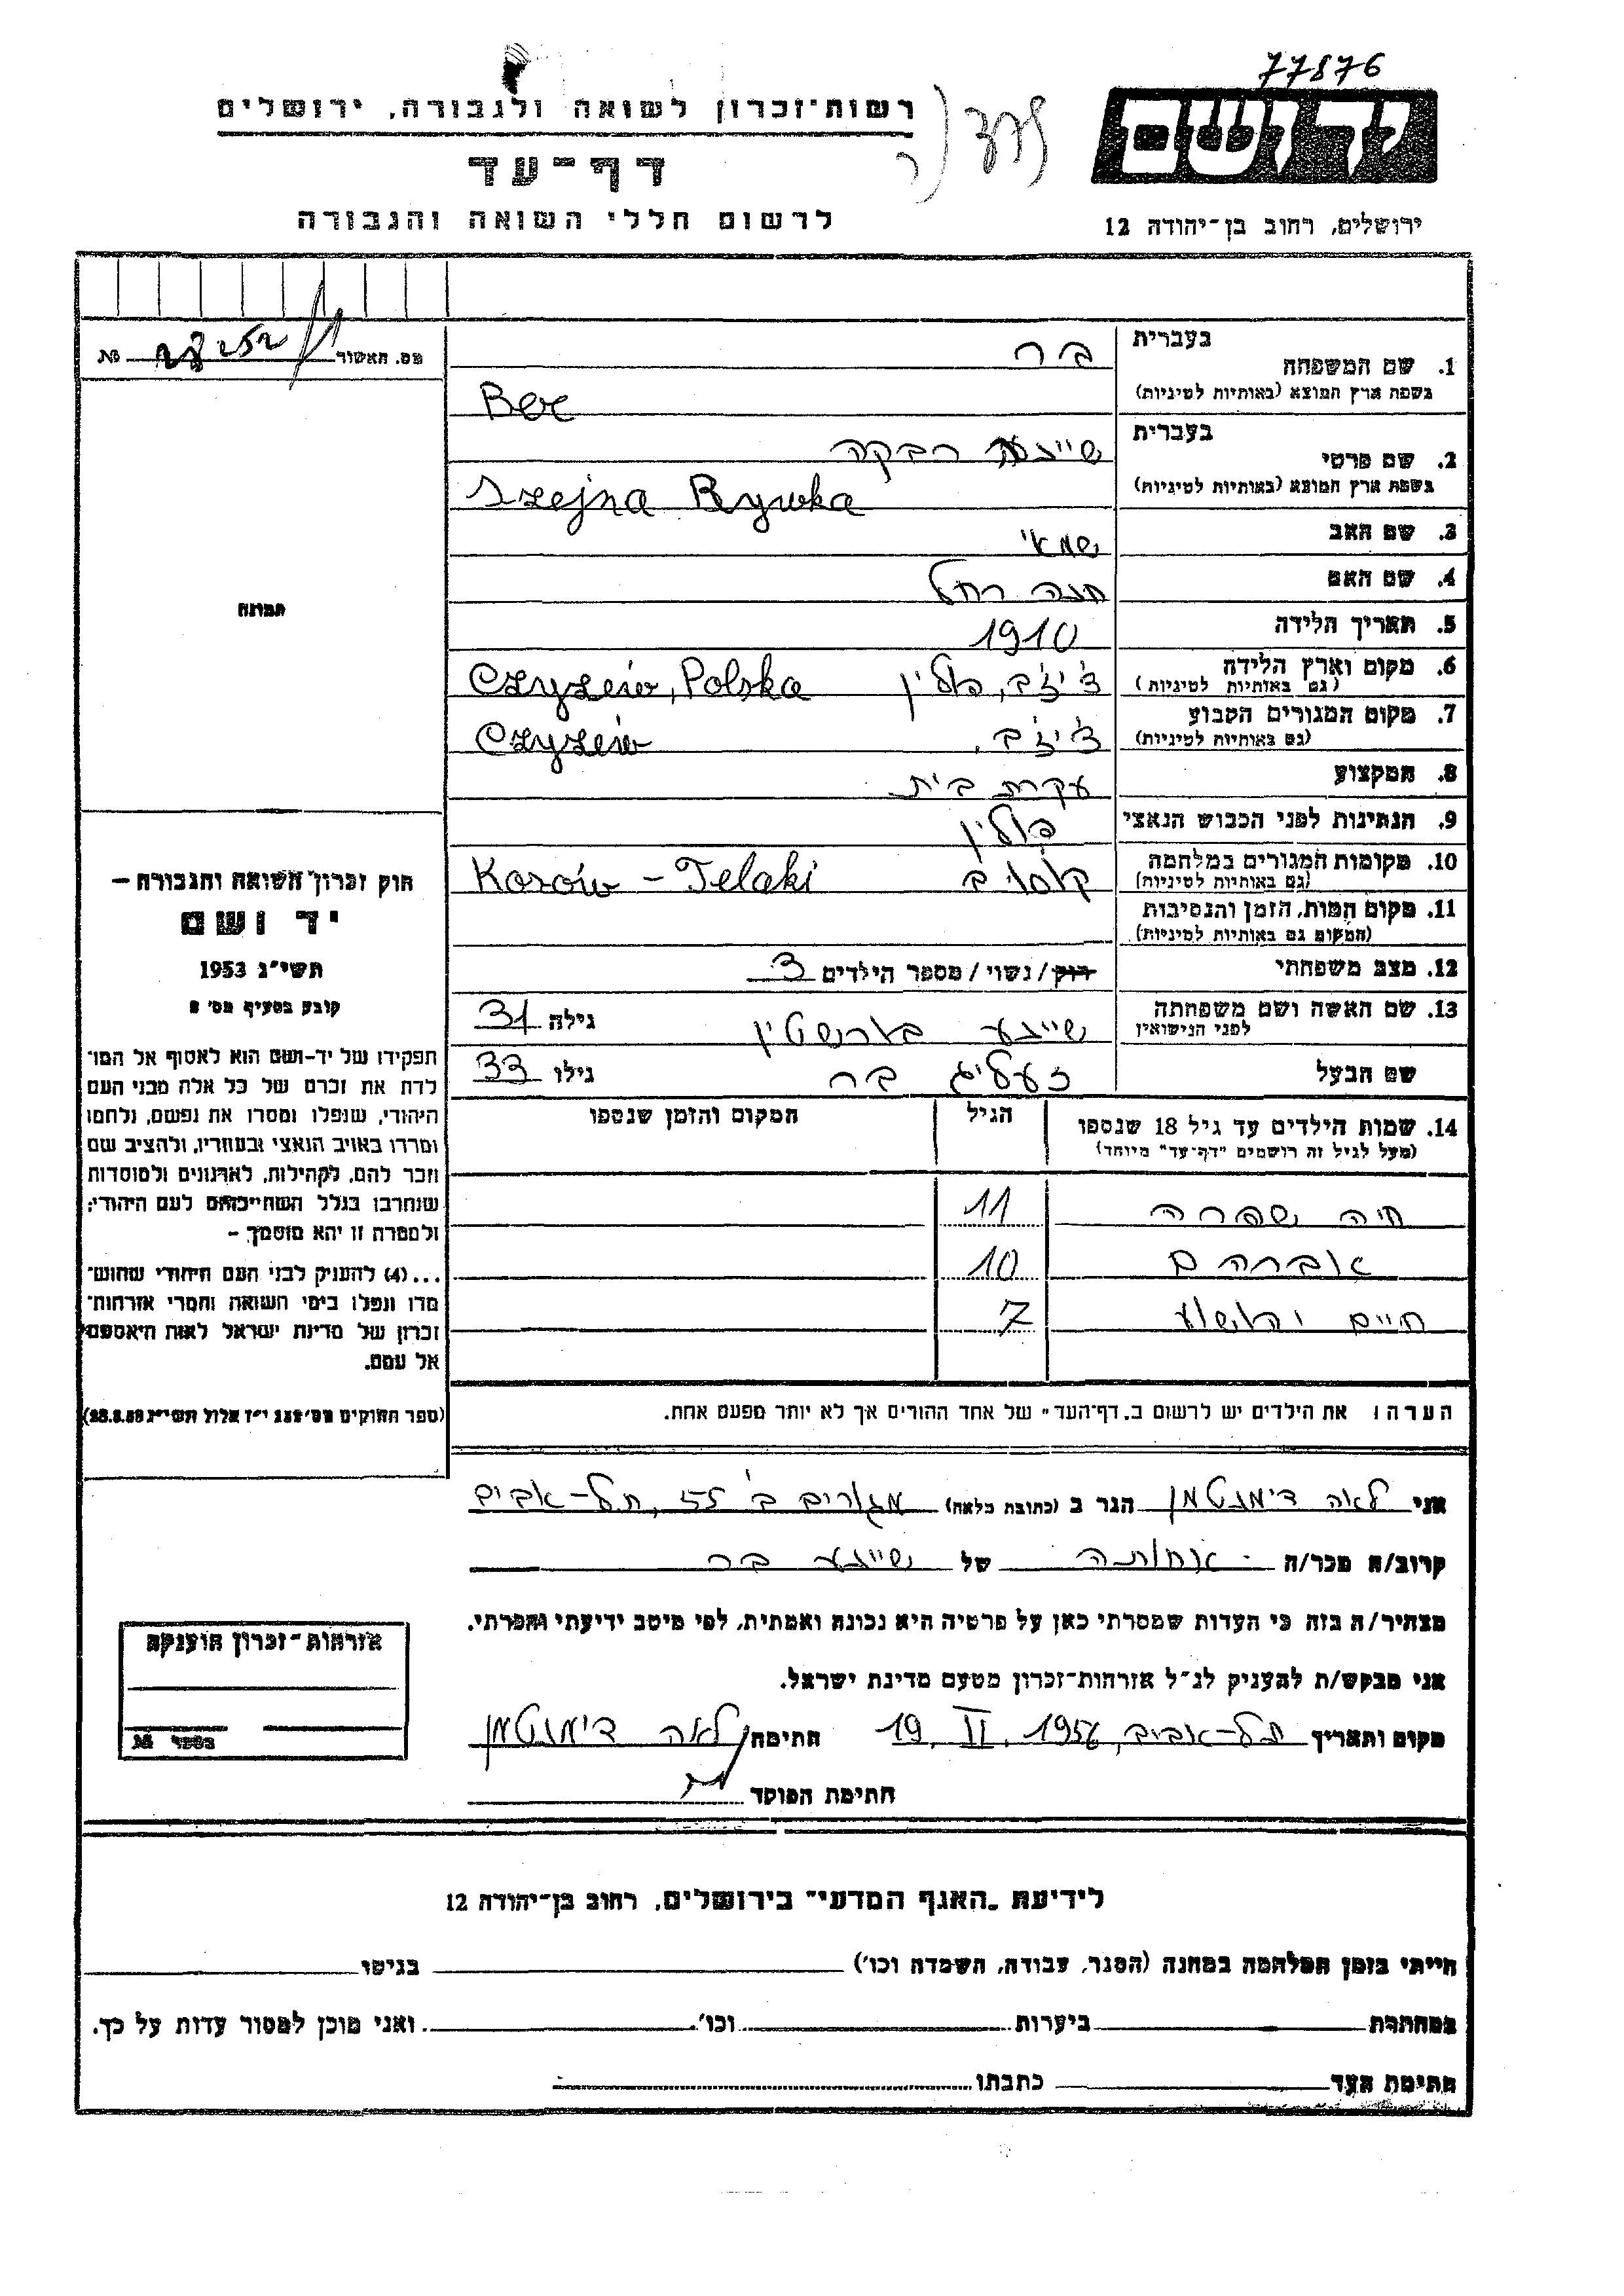 77876
ידושם
ירושלים, רחוב בן־יהודה 12
רשות־זכרון לשואה ולגבורה, ירושלים
דף־עד
לרשום חללי השואה והגבורה
מס. האשור № 28252
בעברית
1. שם המשפחה בר
בשפת ארץ המוצא (באותיות לטיניות) Ber
בעברית
2. שם פרטי שיינע רבקה
בשפת ארץ המוצא (באותיות לטיניות) Szejna Rywka
3. שם האב שמאי
4. שם האם חנה רחל
5. תאריך הלידה 1910
6. מקום וארץ הלידה צ'יז'ב, פולין Czyżew, Polska
(גם באותיות לטיניות)
7. מקום המגורים הקבוע צ'יז'ב. Czyżew
(גם באותיות לטיניות)
8. המקצוע עקרת בית
9. הנתינות לפני הכבוש הנאצי פולין
10. מקומות המגורים במלחמה קוסוב Kosów - Telaki
(גם באותיות לטיניות)
11. מקום המות, הזמן והנסיבות
(המקום גם באותיות לטיניות)
12. מצב משפחתי רוק/נשוי/מספר הילדים 3
13. שם האשה ושם משפחתה שיינע בורשטין גילה 31
לפני הנישואין
שם הבעל זעליג בר גילו 33
14. שמות הילדים עד גיל 18 שנספו הגיל המקום והזמן שנספו
(מעל לגיל זה רושמים "דף־עד" מיוחד)
חיה שפרה 11
אברהם 10
חיים יהושוע 7
הערה: את הילדים יש לרשום ב„דף־העד" של אחד ההורים אך לא יותר מפעם אחת.
תמונה
חוק זכרון השואה והגבורה –
יד ושם
תשי״ג 1953
קובע בסעיף מס' 2
תפקידו של יד־ושם הוא לאסוף אל המו־
לדת את זכרם של כל אלה מבני העם
היהודי, שנפלו ומסרו את נפשם, נלחמו
ומרדו באויב הנאצי ובעוזריו, ולהציב שם
וזכר להם, לקהילות, לארגונים ולמוסדות
שנחרבו בגלל השתייכותם לעם היהודי;
ולמטרה זו יהא מוסמך –
...(4) להעניק לבני העם היהודי שהוש־
מדו ונפלו בימי השואה והמרי אזרחות־
זכרון של מדינת ישראל לאות היאספם
אל עמם.
(ספר החוקים מס' 132 י״ז אלול תשי״ג 28.8.53)
אני לאה דימנטמן הגר ב (כתובת מלאה) מגורים ב' 55, תל-אביב
קרוב/ה מכר/ה אחותה של שיינע בר
מצהיר/ה בזה כי העדות שמסרתי כאן על פרטיה היא נכונה ואמתית, לפי מיטב ידיעתי והכרתי.
אני מבקש/ת להעניק לנ״ל אזרחות־זכרון מטעם מדינת ישראל.
מקום ותאריך תל-אביב, 19. II. 1956 חתימה לאה דימנטמן
חתימת הפוקד
אזרחות־זכרון הוענקה
מספר №
לידיעת „האגף המדעי" בירושלים, רחוב בן־יהודה 12
הייתי בזמן המלחמה במחנה (הסגר, עבודה, השמדה וכו') בגיטו
במחתרת ביערות וכו'. ואני מוכן למסור עדות על כך.
חתימת העד כתבתו